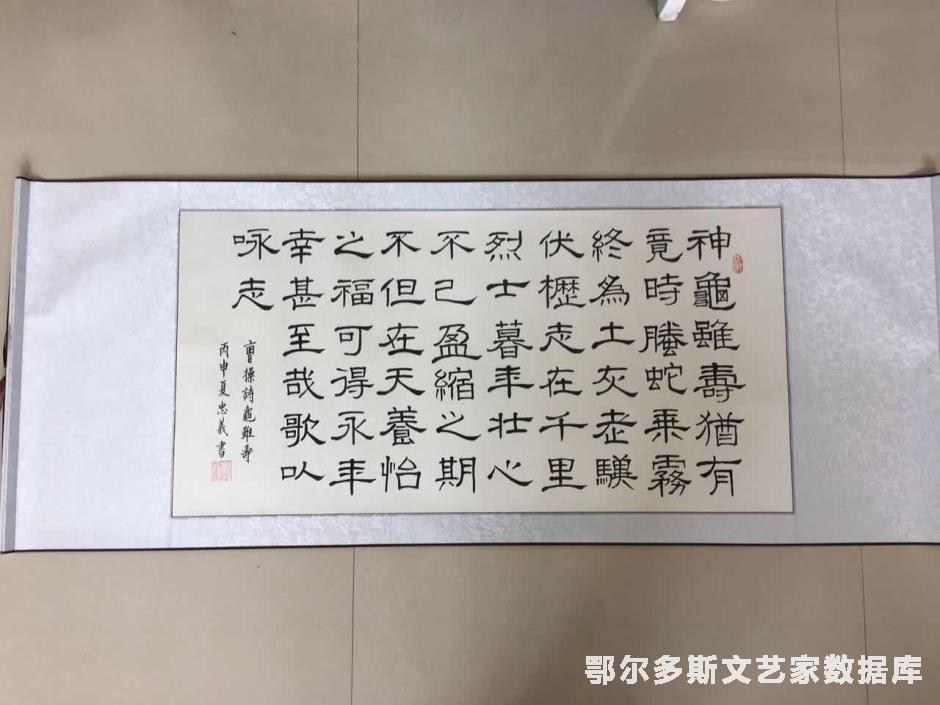 神龜雖壽猶有
竟時螣蛇乗霧
終為土灰老驥
伏櫪志在千里
烈士暮年壯心
不已盈縮之期
不但在天養怡
之福可得永年
幸甚至哉歌以
咏志
曹操詩龜雖壽
丙申夏忠義書
鄂尔多斯文艺家数据库